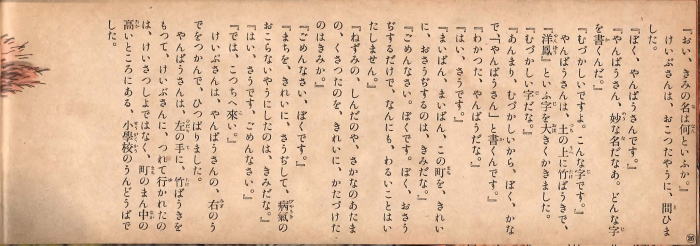 『おい、きみの名は何といふか』
けいぶさんは、おこつたやうに、問ひま
した。
『ぼく、やんばうさんです。』
『やんばうさん、妙な名だなあ。どんな字
を書くんだ。』
『むづかしいですよ。こんな字です。』
やんばうさんは、土の上に竹ばうきで、
『洋鳳』といふ字を大きくかきました。
『むづかしい字だな。』
『あんまり、むづかしいから、ぼく、かな
で、「やんばうさん」と書くんです。』
『わかつた、やんばうだな。』
『はい、さうです。』
『まいばん、まいばん、この町を、きれい
に、おさうぢするのは、きみだな。』
『ごめんなさい。ぼくです。ぼく、おさう
ぢするだけで、なんにも、わるいことはい
たしません。』
『ねずみの、しんだのや、さかなのあたま
の、くさつたのを、きれいに、かたづけた
のはきみか。』
『ごめんなさい、ぼくです。』
『まちを、きれいに、さうぢして、病氣の
おこらないやうにしたのは、きみだな。』
『はい、さうです、ごめんなさい。』
『では、こつちへ來い。』
けいぶさんは、やんばうさんの、右のう
でをつかんで、ひつぱりました。
やんばうさんは、左の手に、竹ばうきを
もつて、けいぶさんに、つれて行かれたの
は、けいさつしよではなく、町のまん中の
高いところにある、小學校のうんどうばで
した。